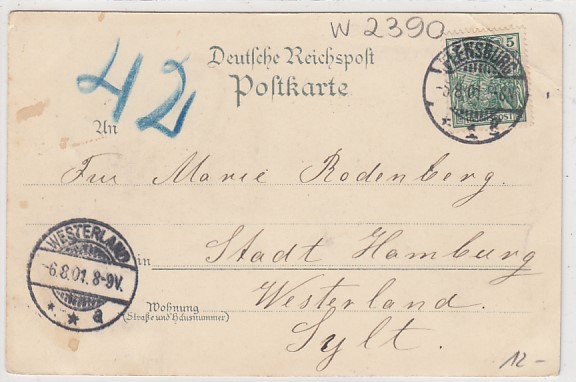 W 2390
Deutsche Reichspost
Postkarte
42
An
5
5.8.01.
Marie Rodenberg.
WESTERLAND
-6.8.01. 8-9V.
* * a
in
Stadt Hamburg
Westerland.
Wohnung
(Straße und Hausnummer)
Sylt.
12-